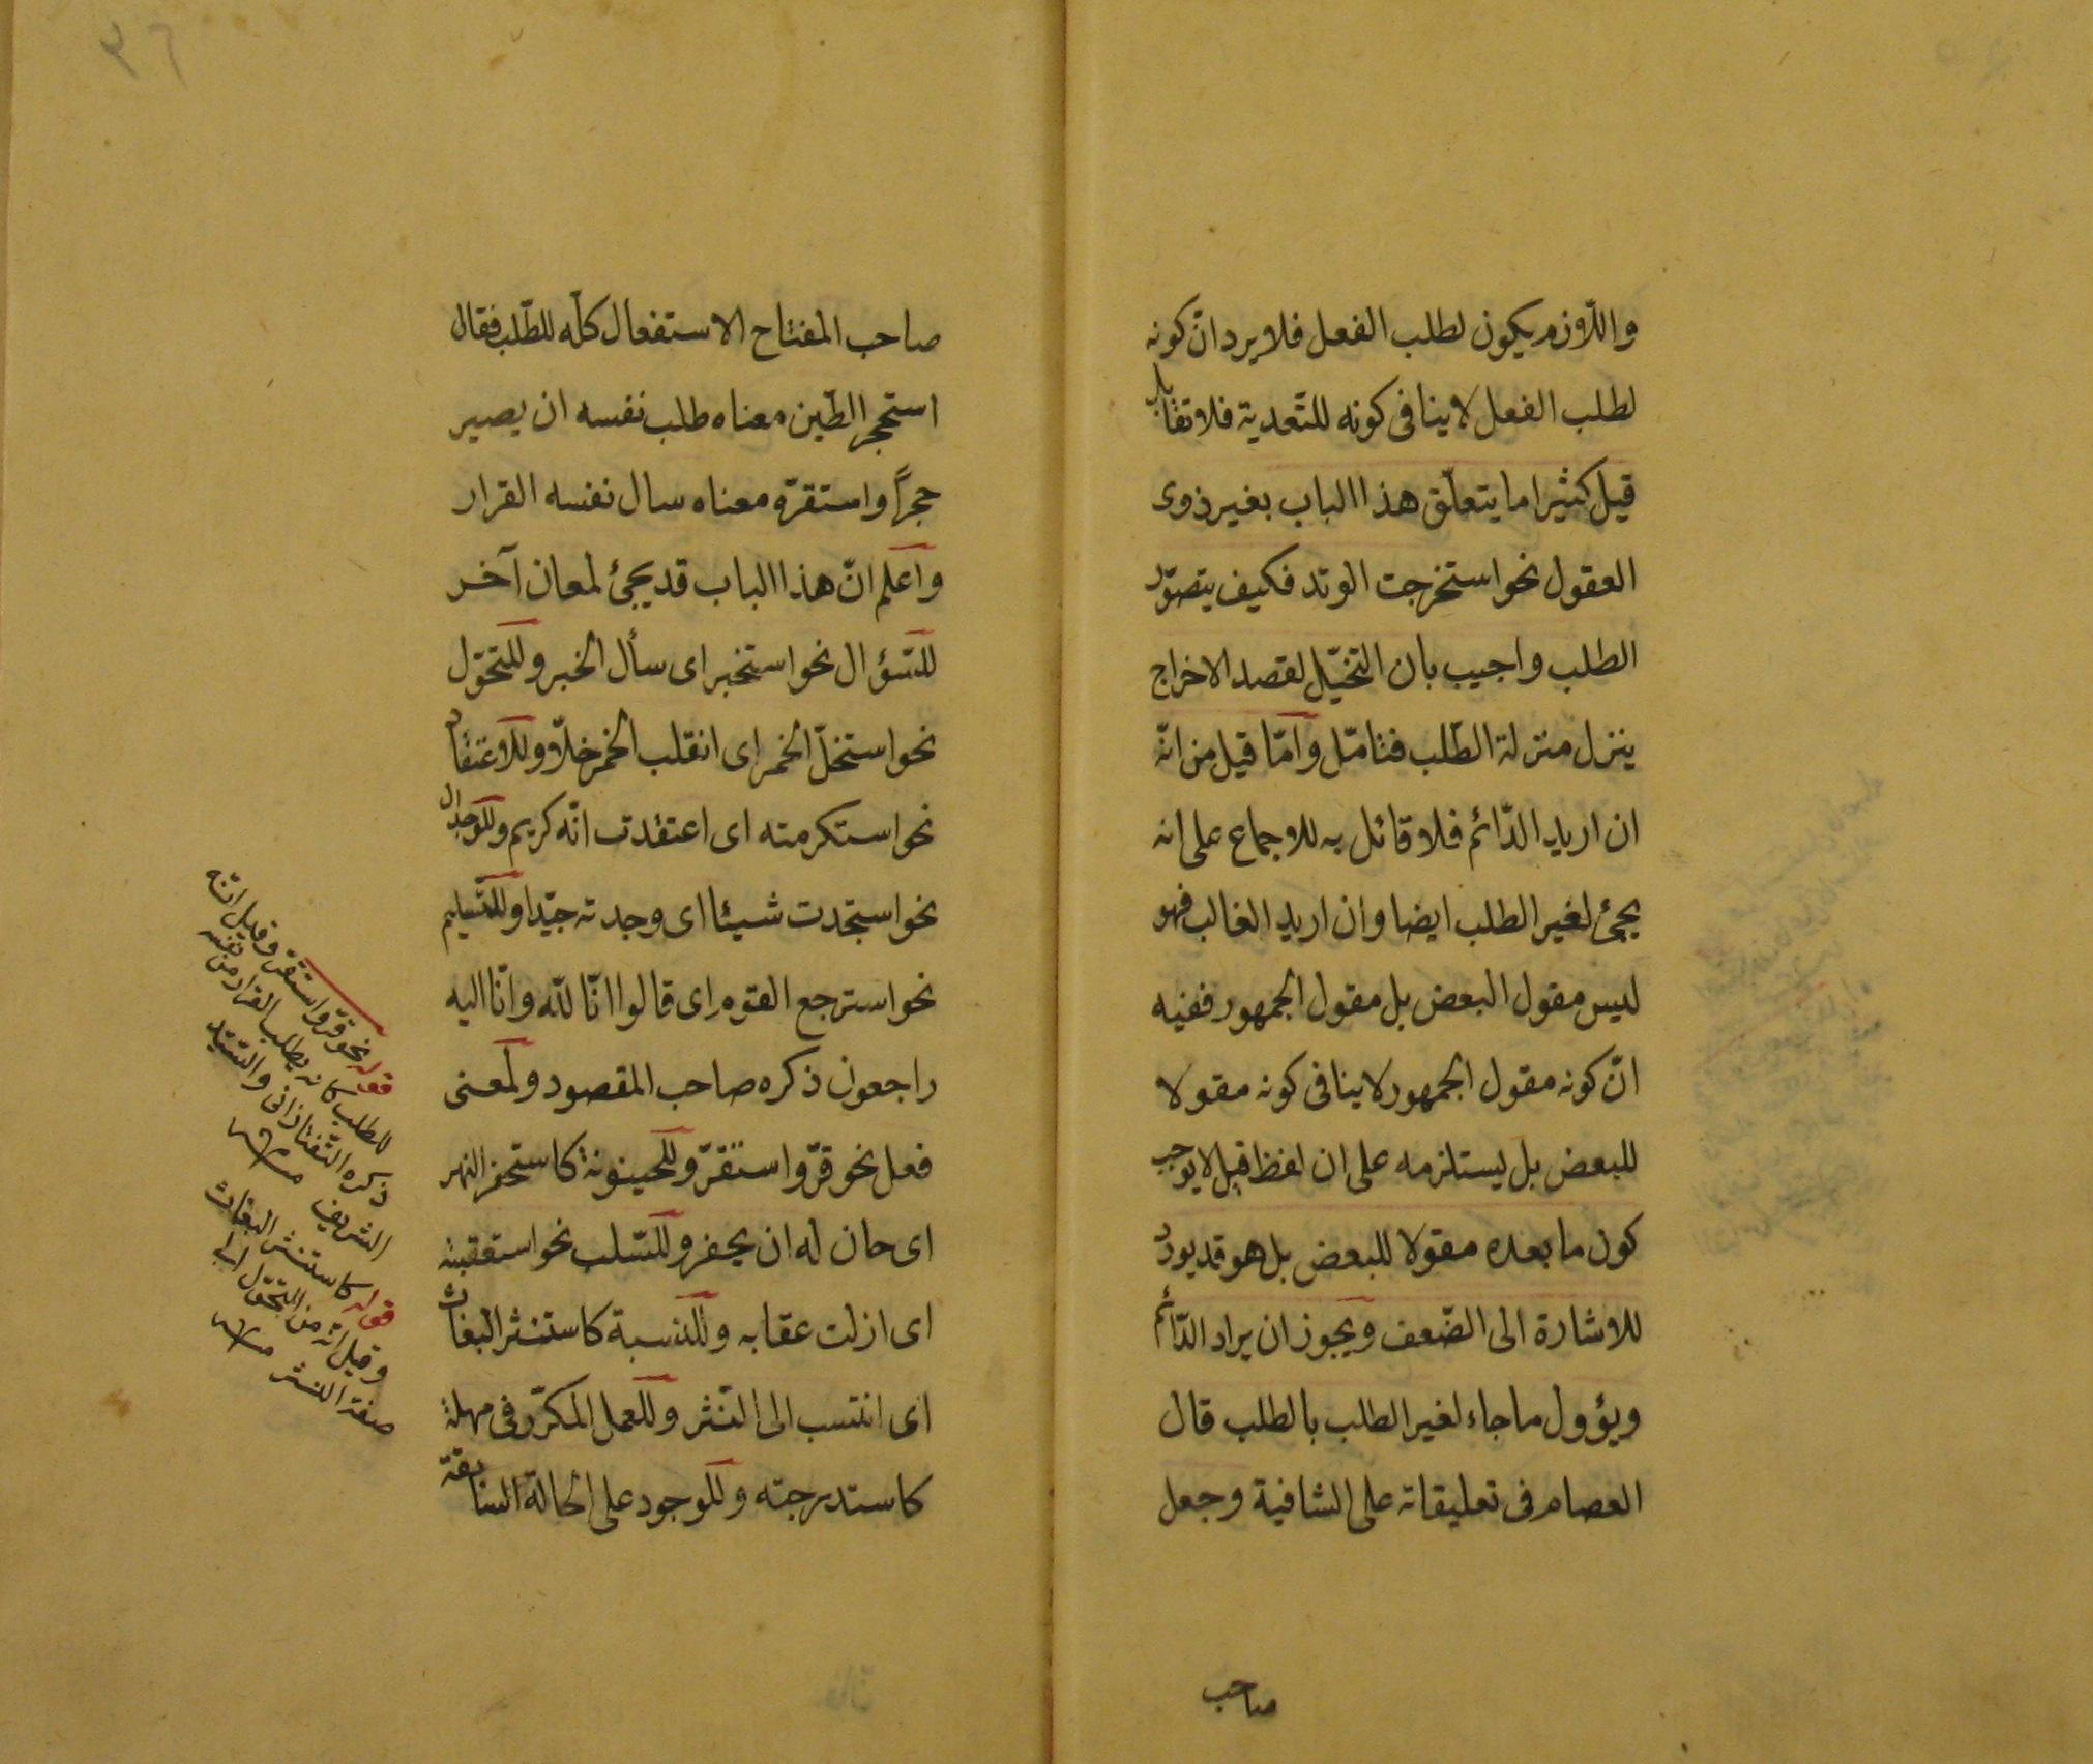 واللازم يكون لطلب الفعل فلا يرد انّ كونه
لطلب الفعل لا ينافى كونه للتّعدية فلا تقابل
قيل كثيرا ما يتعلّق هذا الباب بغير ذوى
العقول نحو استخرجت الوتد فكيف يتصوّر
الطلب واجيب بان التخيّل لقصد الاخراج
ينزل منزلة الطّلب فتامّل وامّا قيل من انّه
ان اريد الدّائم فلا قائل به للاجماع على انه
يجئ لغير الطلب ايضا وان اريد الغالب فهو
ليس مقول البعض بل مقول الجمهور ففيه
انّ كونه مقول الجمهور لا ينافى كونه مقولا
للبعض بل يستلزمه على ان لفظ قيل لا يوجب
كون ما بعده مقولا للبعض بل هو قد يورد
للاشارة الى الضّعف ويجوز ان يراد الدّائم
ويؤول ما جاء لغير الطلب بالطلب قال
العصام فى تعليقاته على الشافية وجعل
صاحب
٣٦
صاحب المفتاح الاستفعال كلّه للطّلب فقال
استحجر الطّين معناه طلب نفسه ان يصير
حجراً واستقرّه معناه سال نفسه القرار
واعلم انّ هذا الباب قد يجئ لمعان آخر
للسّؤال نحو استخبر اى سأل الخبر وللتحوّل
نحو استخلّ الخمر اى انقلب الخمر خلّا وللاعتقاد
نحو استكرمته اى اعتقدت انّه كريم وللوجدان
نحو استجدت شيئا اى وجدته جيّدا وللتّسليم
نحو استرجع القوم اى قالوا انّا للّه وانّا اليه
راجعون ذكره صاحب المقصود ولمعنى
فعل نحو قرّ واستقرّ وللحينونة كاستحفر النهر
اى حان له ان يحفر وللسّلب نحو استعقبته
اى ازلت عقابه وللنسبة كاستنثر البغاث
اى انتسب الى النّثر وللعمل المكرّر فى مهلة
كاستدرجته وللوجود على الحالة السّابقة
قوله نحو قرّ واستقرّ وقيل انّه
للطلب كانه يطلب القرار من نفسه
ذكره التّفتازانى والسّيّد
الشريف
قوله كاستنثر البغاث
وقيل انّه من التحوّل الى
صفة النثر